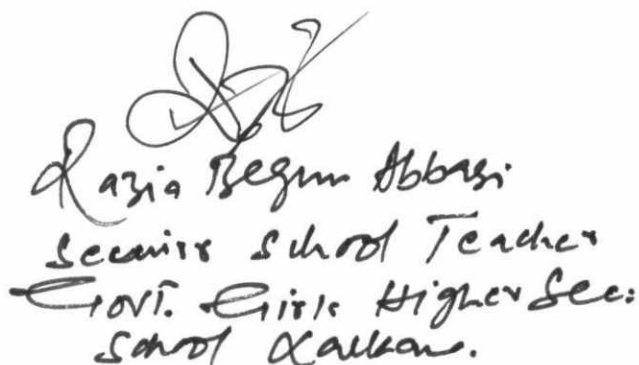 Razia Begum Abbasi
School Teacher
Govt. Girls Higher Sec:
School